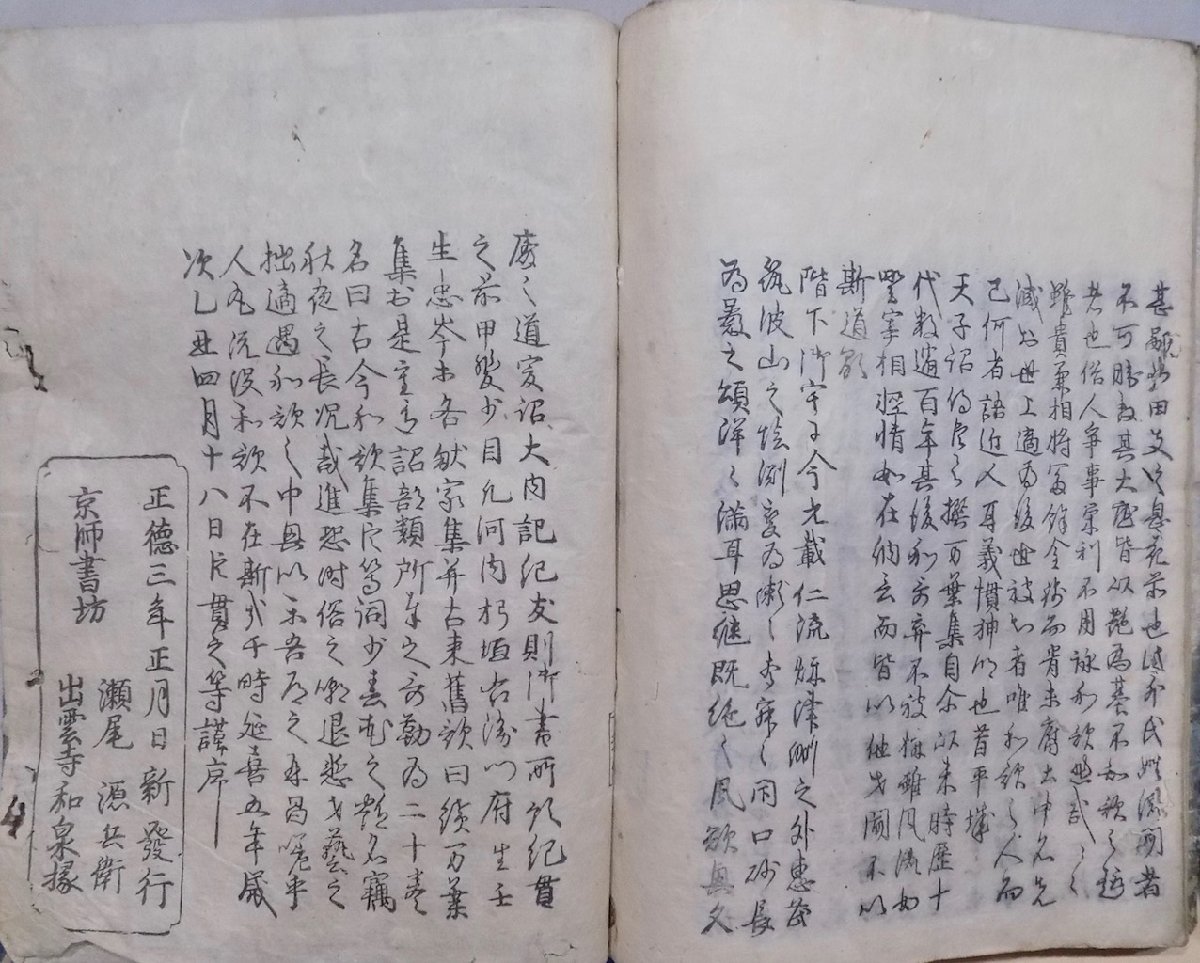 甚難然田夫之息花前也此外氏姓流聞者
不可勝数其大底皆以艶為基不知歌之趣
者也俗人争事栄利不用詠和歌悲哉〻〻
雖貴兼相将富餘金銭而骨未腐土中名先
滅於世上適為後世被知者唯和歌之人而
已何者語近人耳義慣神明也昔平城
天子詔侍臣令撰万葉集自尓以来時歴十
代数過百年其後和哥弃不被採雖風流如
野宰相軽情如在納言而皆以他才聞不以
斯道顕
階下御宇于今九載仁流秋津洲之外恵茂
筑波山之陰淵変為瀬之声寂〻閇口砂長
為巌之頌洋〻満耳思継既絶之風欲興久
廃之道爰詔大内記紀友則御書所預紀貫
之前甲斐少目凡河内躬恒右衛門府生壬
生忠岑等各献家集并古来舊歌曰続万葉
集於是重有詔部類所奉之哥勒為二十巻
名曰古今和歌集臣等詞少春花之艶名竊
秋夜之長况哉進恐時俗之嘲退慙才藝之
拙適遇和歌之中興以楽吾道之再昌嗟乎
人丸既没和歌不在斯哉于時延喜五年歳
次乙丑四月十八日臣貫之等謹序
正徳三年正月日新發行
京師書坊
瀬尾 源兵衛
出雲寺和泉掾